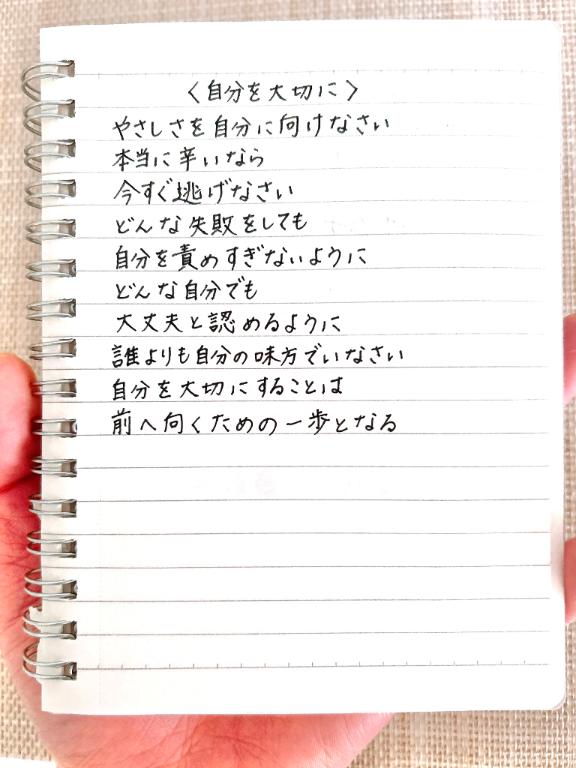 〈自分を大切に〉
やさしさを自分に向けなさい
本当に辛いなら
今すぐ逃げなさい
どんな失敗をしても
自分を責めすぎないように
どんな自分でも
大丈夫と認めるように
誰よりも自分の味方でいなさい
自分を大切にすることは
前へ向くための一歩となる